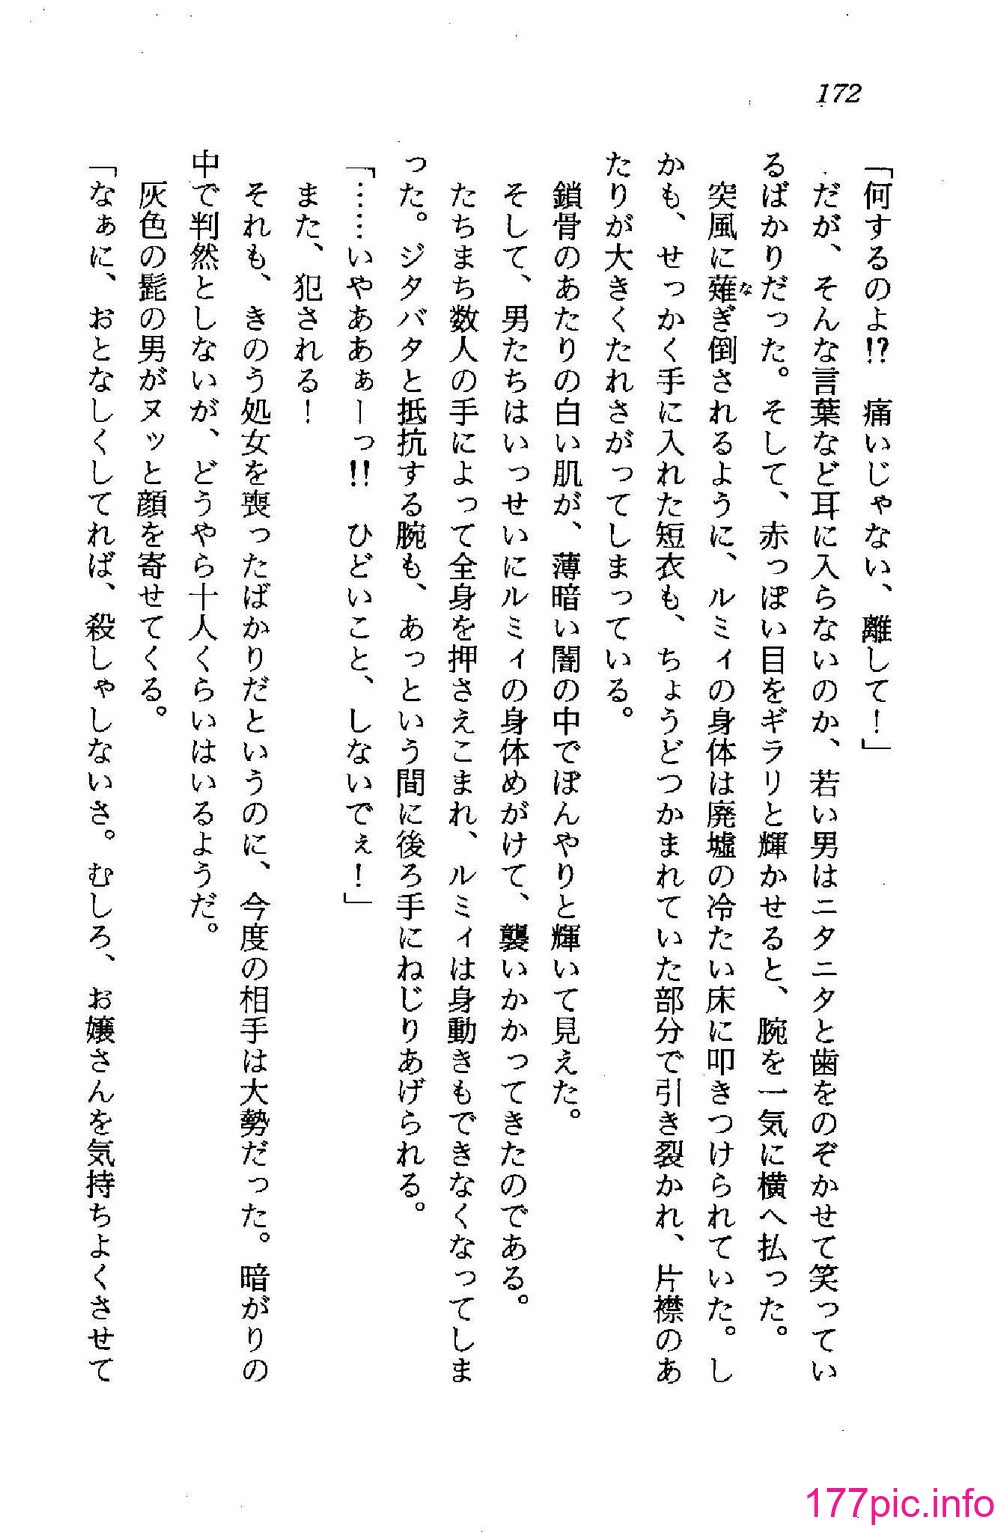 172
「何するのよ!? 痛いじゃない、離して！」
だが、そんな言葉など耳に入らないのか、若い男はニタニタと歯をのぞかせて笑ってい
るばかりだった。そして、赤っぽい目をギラリと輝かせると、腕を一気に横へ払った。
突風に薙な
ぎ倒されるように、ルミィの身体は廃墟の冷たい床に叩きつけられていた。し
かも、せっかく手に入れた短衣も、ちょうどつかまれていた部分で引き裂かれ、片襟のあ
たりが大きくたれさがってしまっている。
鎖骨のあたりの白い肌が、薄暗い闇の中でぼんやりと輝いて見えた。
そして、男たちはいっせいにルミィの身体めがけて、襲いかかってきたのである。
たちまち数人の手によって全身を押さえこまれ、ルミィは身動きもできなくなってしま
った。ジタバタと抵抗する腕も、あっという間に後ろ手にねじりあげられる。
「……いやああぁーっ!! ひどいこと、しないでぇ！」
また、犯される！
それも、きのう処女を喪ったばかりだというのに、今度の相手は大勢だった。暗がりの
中で判然としないが、どうやら十人くらいはいるようだ。
灰色の髭の男がヌッと顔を寄せてくる。
「なぁに、おとなしくしてれば、殺しゃしないさ。むしろ、お嬢さんを気持ちよくさせて
177pic.info